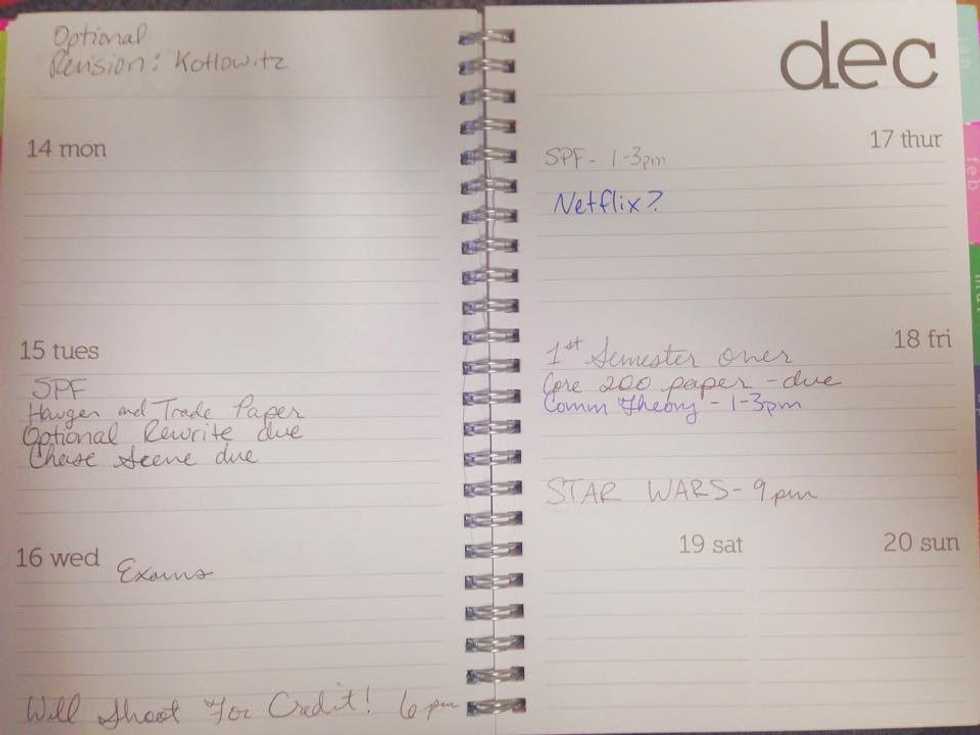 Optional
Revision: Kotlowitz
14 mon
15 tues
SPF
Hunger and Trade Paper
Optional Rewrite due
Chase Scene due
16 wed
Exams
Will Shoot For Credit! 6 pm
dec
17 thur
SPF - 1-3pm
Netflix?
18 fri
1st Semester over
Core 200 paper - due
Comm Theory - 1-3pm
STAR WARS - 9 pm
19 sat
20 sun
feb